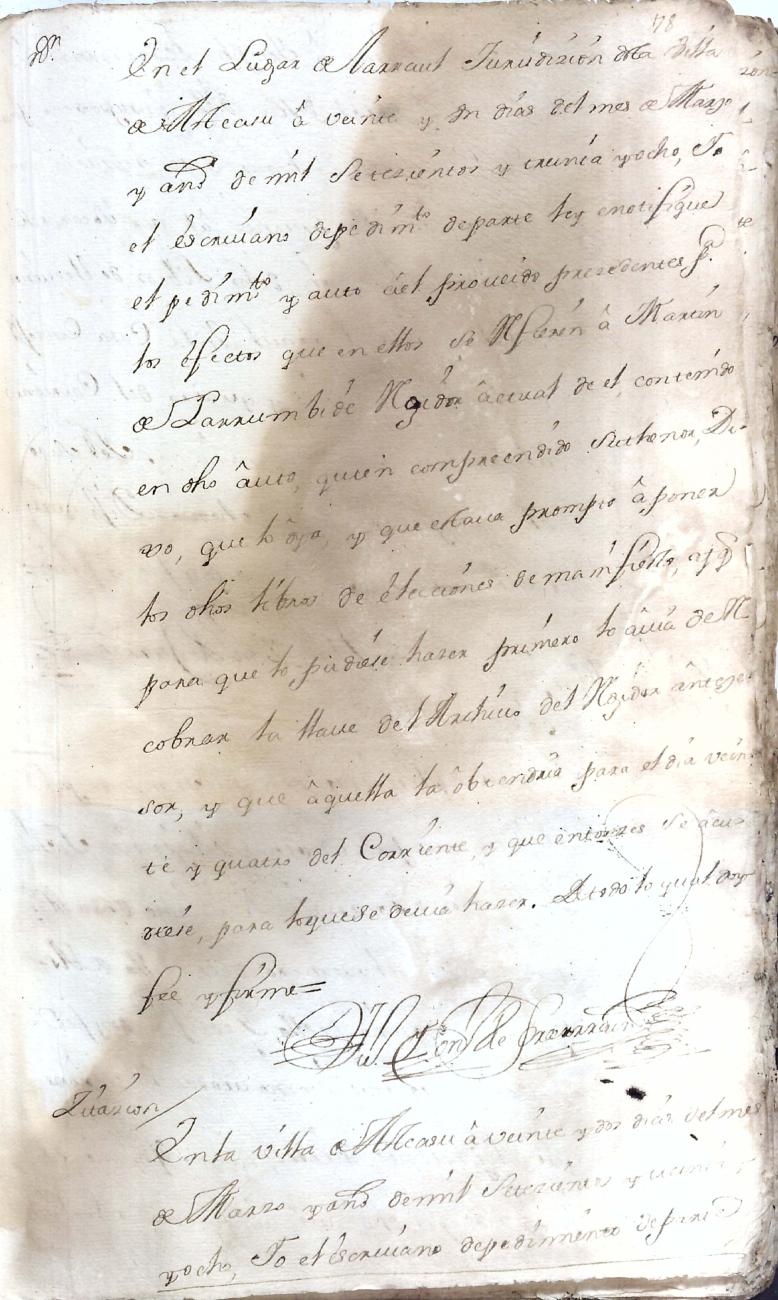 78
En el Lugar de Narraul Jurisdizion de la Villa
de Alcasu â veinte y un dias del mes de Marzo
y año de mil Setezientos y treinta y ocho, Yo
el escriuano depedim.to departe ley enotifique
el pedim.to y auto del proueido prezedentes p.a
los efectos que en ellos se Refieren â Martin
de Larrumbide Regidor âctual de el contenido
en dho âuto, quien compreendido Suthenor, Di-
xo, que lo ôya, y que estaua prompto â poner
los dhos libros de elecciones de manifiesto,
para que lo pudiese hazer primero lo auia de Re
cobrar la llaue del Archiuo del Regidor ânteze-
sor, y que âquella la ôbtendria para el dia vein
te y quatro del Corriente, y que entonzes se âcu-
diese, para loquese deuia hazer. De todo lo qual doy
fee y firme =
En la villa de Alcasu â veinte y dos dias del mes
de Marzo y año de mil Setezientos y treinta
y ocho, Yo el escriuano depedimiento departe